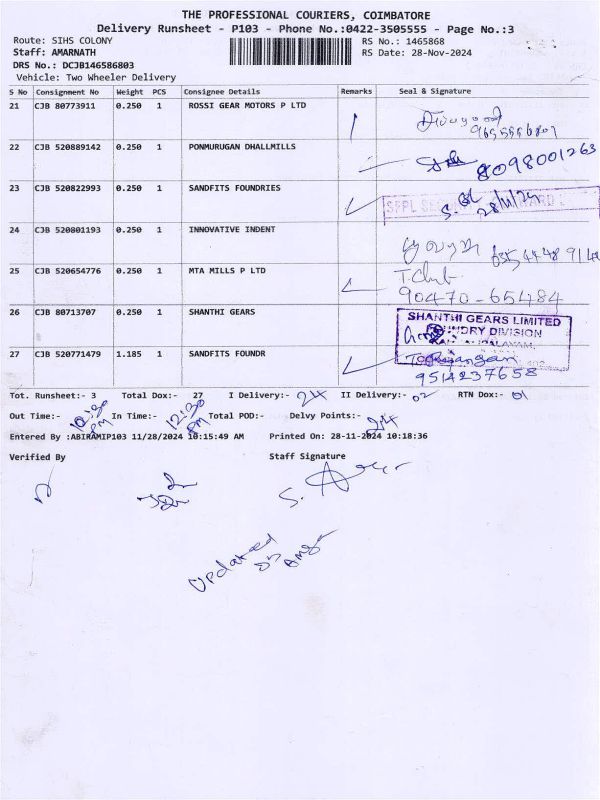 THE PROFESSIONAL COURIERS, COIMBATORE
Delivery Runsheet - P103 - Phone No.:0422-3505555 - Page No.:3
Route: SIHS COLONY RS No.: 1465868
Staff: AMARNATH RS Date: 28-Nov-2024
DRS No.: DCJB146586803
Vehicle: Two Wheeler Delivery
S No Consignment No Weight PCS Consignee Details Remarks Seal & Signature
21 CJB 80773911 0.250 1 ROSSI GEAR MOTORS P LTD
22 CJB 520889142 0.250 1 PONMURUGAN DHALLMILLS 8098001263
23 CJB 520822993 0.250 1 SANDFITS FOUNDRIES
28/11/24
24 CJB 520801193 0.250 1 INNOVATIVE INDENT
25 CJB 520654776 0.250 1 MTA MILLS P LTD
90470-65484
26 CJB 80713707 0.250 1 SHANTHI GEARS SHANTHI GEARS LIMITED
DIVISION
27 CJB 520771479 1.185 1 SANDFITS FOUNDR
9514237658
Tot. Runsheet:- 3 Total Dox:- 27 I Delivery:- 24 II Delivery:- 02 RTN Dox:- 01
Out Time:- In Time:- 12:30 PM Total POD:- Delvy Points:- 24
Entered By :ABIRAMIP103 11/28/2024 10:15:49 AM Printed On: 28-11-2024 10:18:36
Verified By Staff Signature
Updated